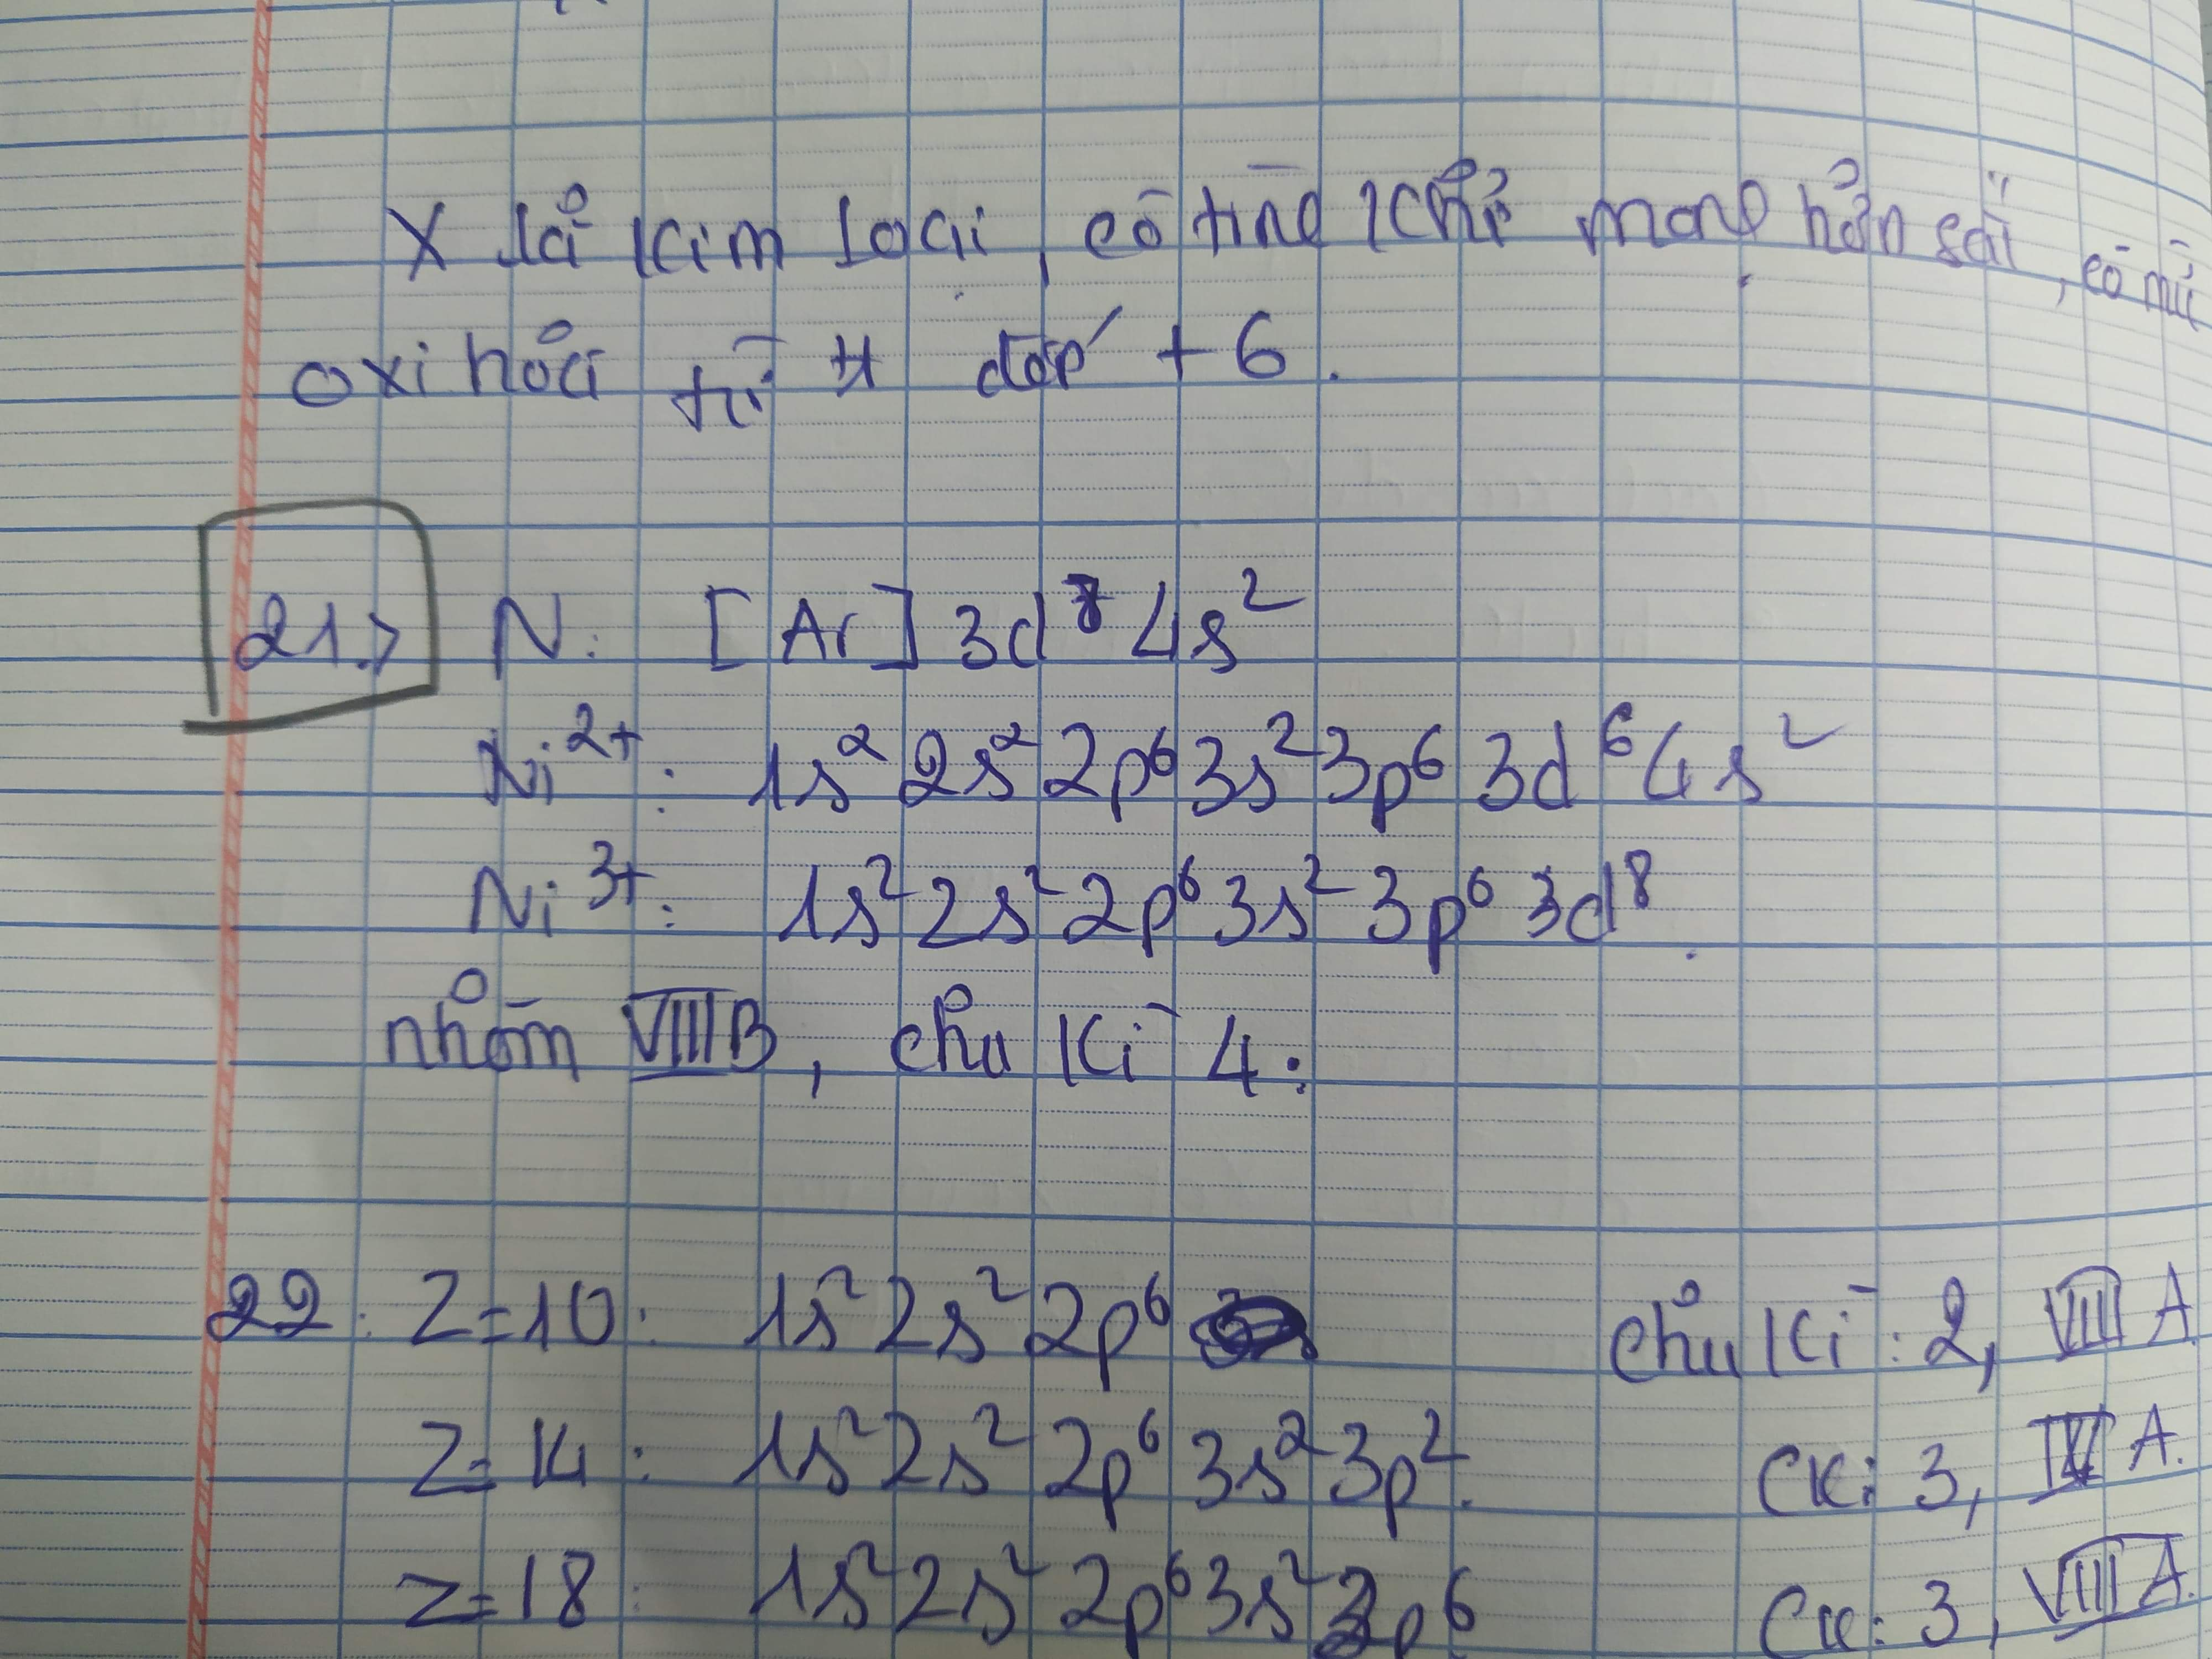 X là kim loại, có tính khử mạnh hơn sắt, có mức
oxi hóa từ +1 đến +6.
21.> N: [Ar] 3d⁸ 4s²
Ni²⁺: 1s² 2s² 2p⁶ 3s² 3p⁶ 3d⁶ 4s²
Ni³⁺: 1s² 2s² 2p⁶ 3s² 3p⁶ 3d⁸.
nhóm VIIIB, chu kì 4.
22. Z=10: 1s² 2s² 2p⁶ chu kì: 2, VIIIA
Z=14: 1s² 2s² 2p⁶ 3s² 3p². CK: 3, IVA.
Z=18: 1s² 2s² 2p⁶ 3s² 3p⁶ CK: 3, VIIIA.